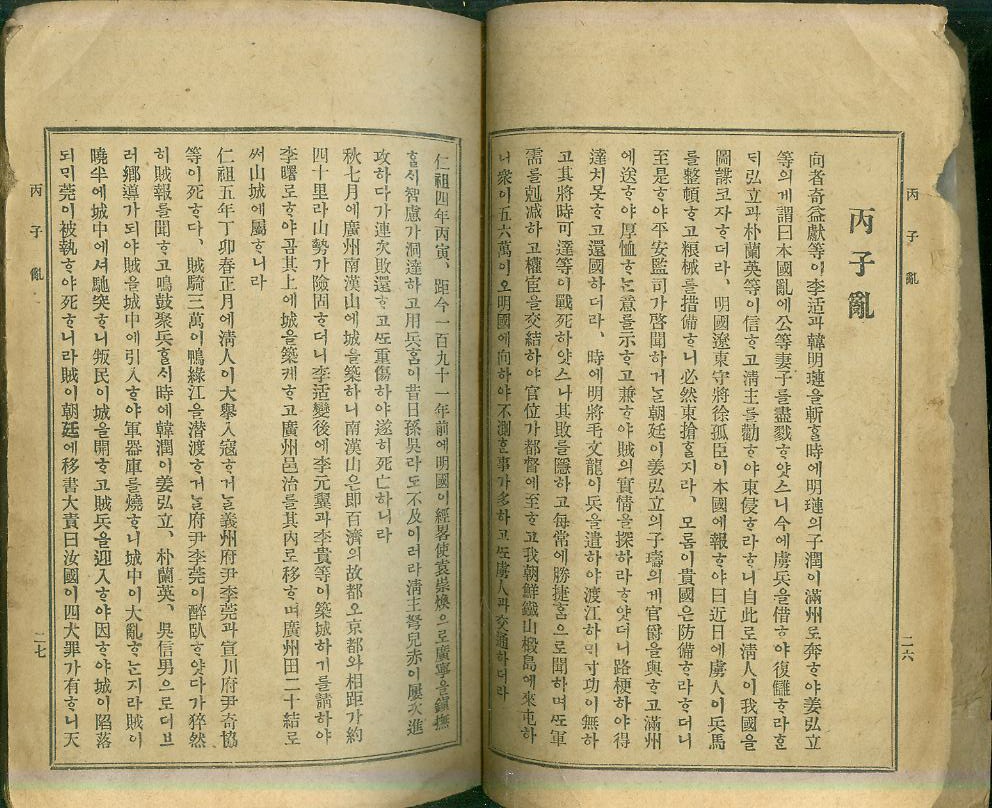 丙子亂
二六
丙子亂
向者奇益獻等이李适과韓明璉을斬ᄒᆞᆯ時에明璉의子潤이滿州로奔ᄒᆞ야姜弘立
等의게謂曰本國亂에公等妻子를盡戮ᄒᆞ얏스니今에虜兵을借ᄒᆞ야復讎ᄒᆞ라ᄒᆞᆫ
ᄃᆡ弘立과朴蘭英等이信ᄒᆞ고淸主를勸ᄒᆞ야東侵ᄒᆞ라ᄒᆞ니自此로淸人이我國을
圖謀코자ᄒᆞ더라、明國遼東守將徐孤臣이本國에報ᄒᆞ야曰近日에虜人이兵馬
를整頓ᄒᆞ고粮械를措備ᄒᆞ니必然東搶ᄒᆞᆯ지라、모롬이貴國은防備ᄒᆞ라ᄒᆞ더니
至是ᄒᆞ야平安監司가啓聞하거ᄂᆞᆯ朝廷이姜弘立의子璹의게官爵을與ᄒᆞ고滿州
에送ᄒᆞ야厚恤ᄒᆞᄂᆞᆫ意를示ᄒᆞ고兼ᄒᆞ야賊의實情을探하라ᄒᆞ얏더니路梗하야得
達치못ᄒᆞ고還國하더라、時에明將毛文龍이兵을遣하야渡江하ᄆᆡ寸功이無하
고其將時可達等이戰死하얏스나其敗를隱하고每常에勝捷ᄒᆞᆷ으로聞하며ᄯᅩ軍
需를剋减하고權宦을交結하야官位가都督에至ᄒᆞ고我朝鮮鐵山椵島에來屯하
니衆이五六萬이오明國에向하야不測ᄒᆞᆫ事가多하고ᄯᅩ虜人과交通하더라
仁祖四年丙寅、距今一百九十一年前에明國이經畧使袁崇煥으로廣寧을鎭撫
ᄒᆞᆯᄉᆡ智慮가洞達하고用兵ᄒᆞᆷ이昔日孫吳라도不及이러라淸主弩兒赤이屢次進
攻하다가連次敗還ᄒᆞ고ᄯᅩ重傷하야遂히死亡하니라
秋七月에廣州南漢山에城을築하니南漢山은即百濟의故都오京都와相距가約
四十里라山勢가險固ᄒᆞ더니李适變後에李元翼과李貴等이築城하기를請하야
李曙로ᄒᆞ야곰其上에城을築케ᄒᆞ고廣州邑治를其內로移ᄒᆞ며廣州田二十結로
써山城에屬ᄒᆞ니라
仁祖五年丁卯春正月에淸人이大擧入寇ᄒᆞ거ᄂᆞᆯ義州府尹李莞과宣川府尹奇協
等이死ᄒᆞ다、賊騎三萬이鴨綠江을潛渡ᄒᆞ거ᄂᆞᆯ府尹李莞이醉臥ᄒᆞ얏다가猝然
히賊報를聞ᄒᆞ고鳴鼓聚兵ᄒᆞᆯᄉᆡ時에韓潤이姜弘立、朴蘭英、吳信男으로더브
러鄕導가되야賊을城中에引入ᄒᆞ야軍器庫를燒ᄒᆞ니城中이大亂ᄒᆞᄂᆞᆫ지라賊이
曉半에城中에셔馳突ᄒᆞ니叛民이城을開ᄒᆞ고賊兵을迎入ᄒᆞ야因ᄒᆞ야城이陷落
되ᄆᆡ莞이被執ᄒᆞ야死ᄒᆞ니라賊이朝廷에移書大責曰汝國이四大罪가有ᄒᆞ니天
丙子亂
二七